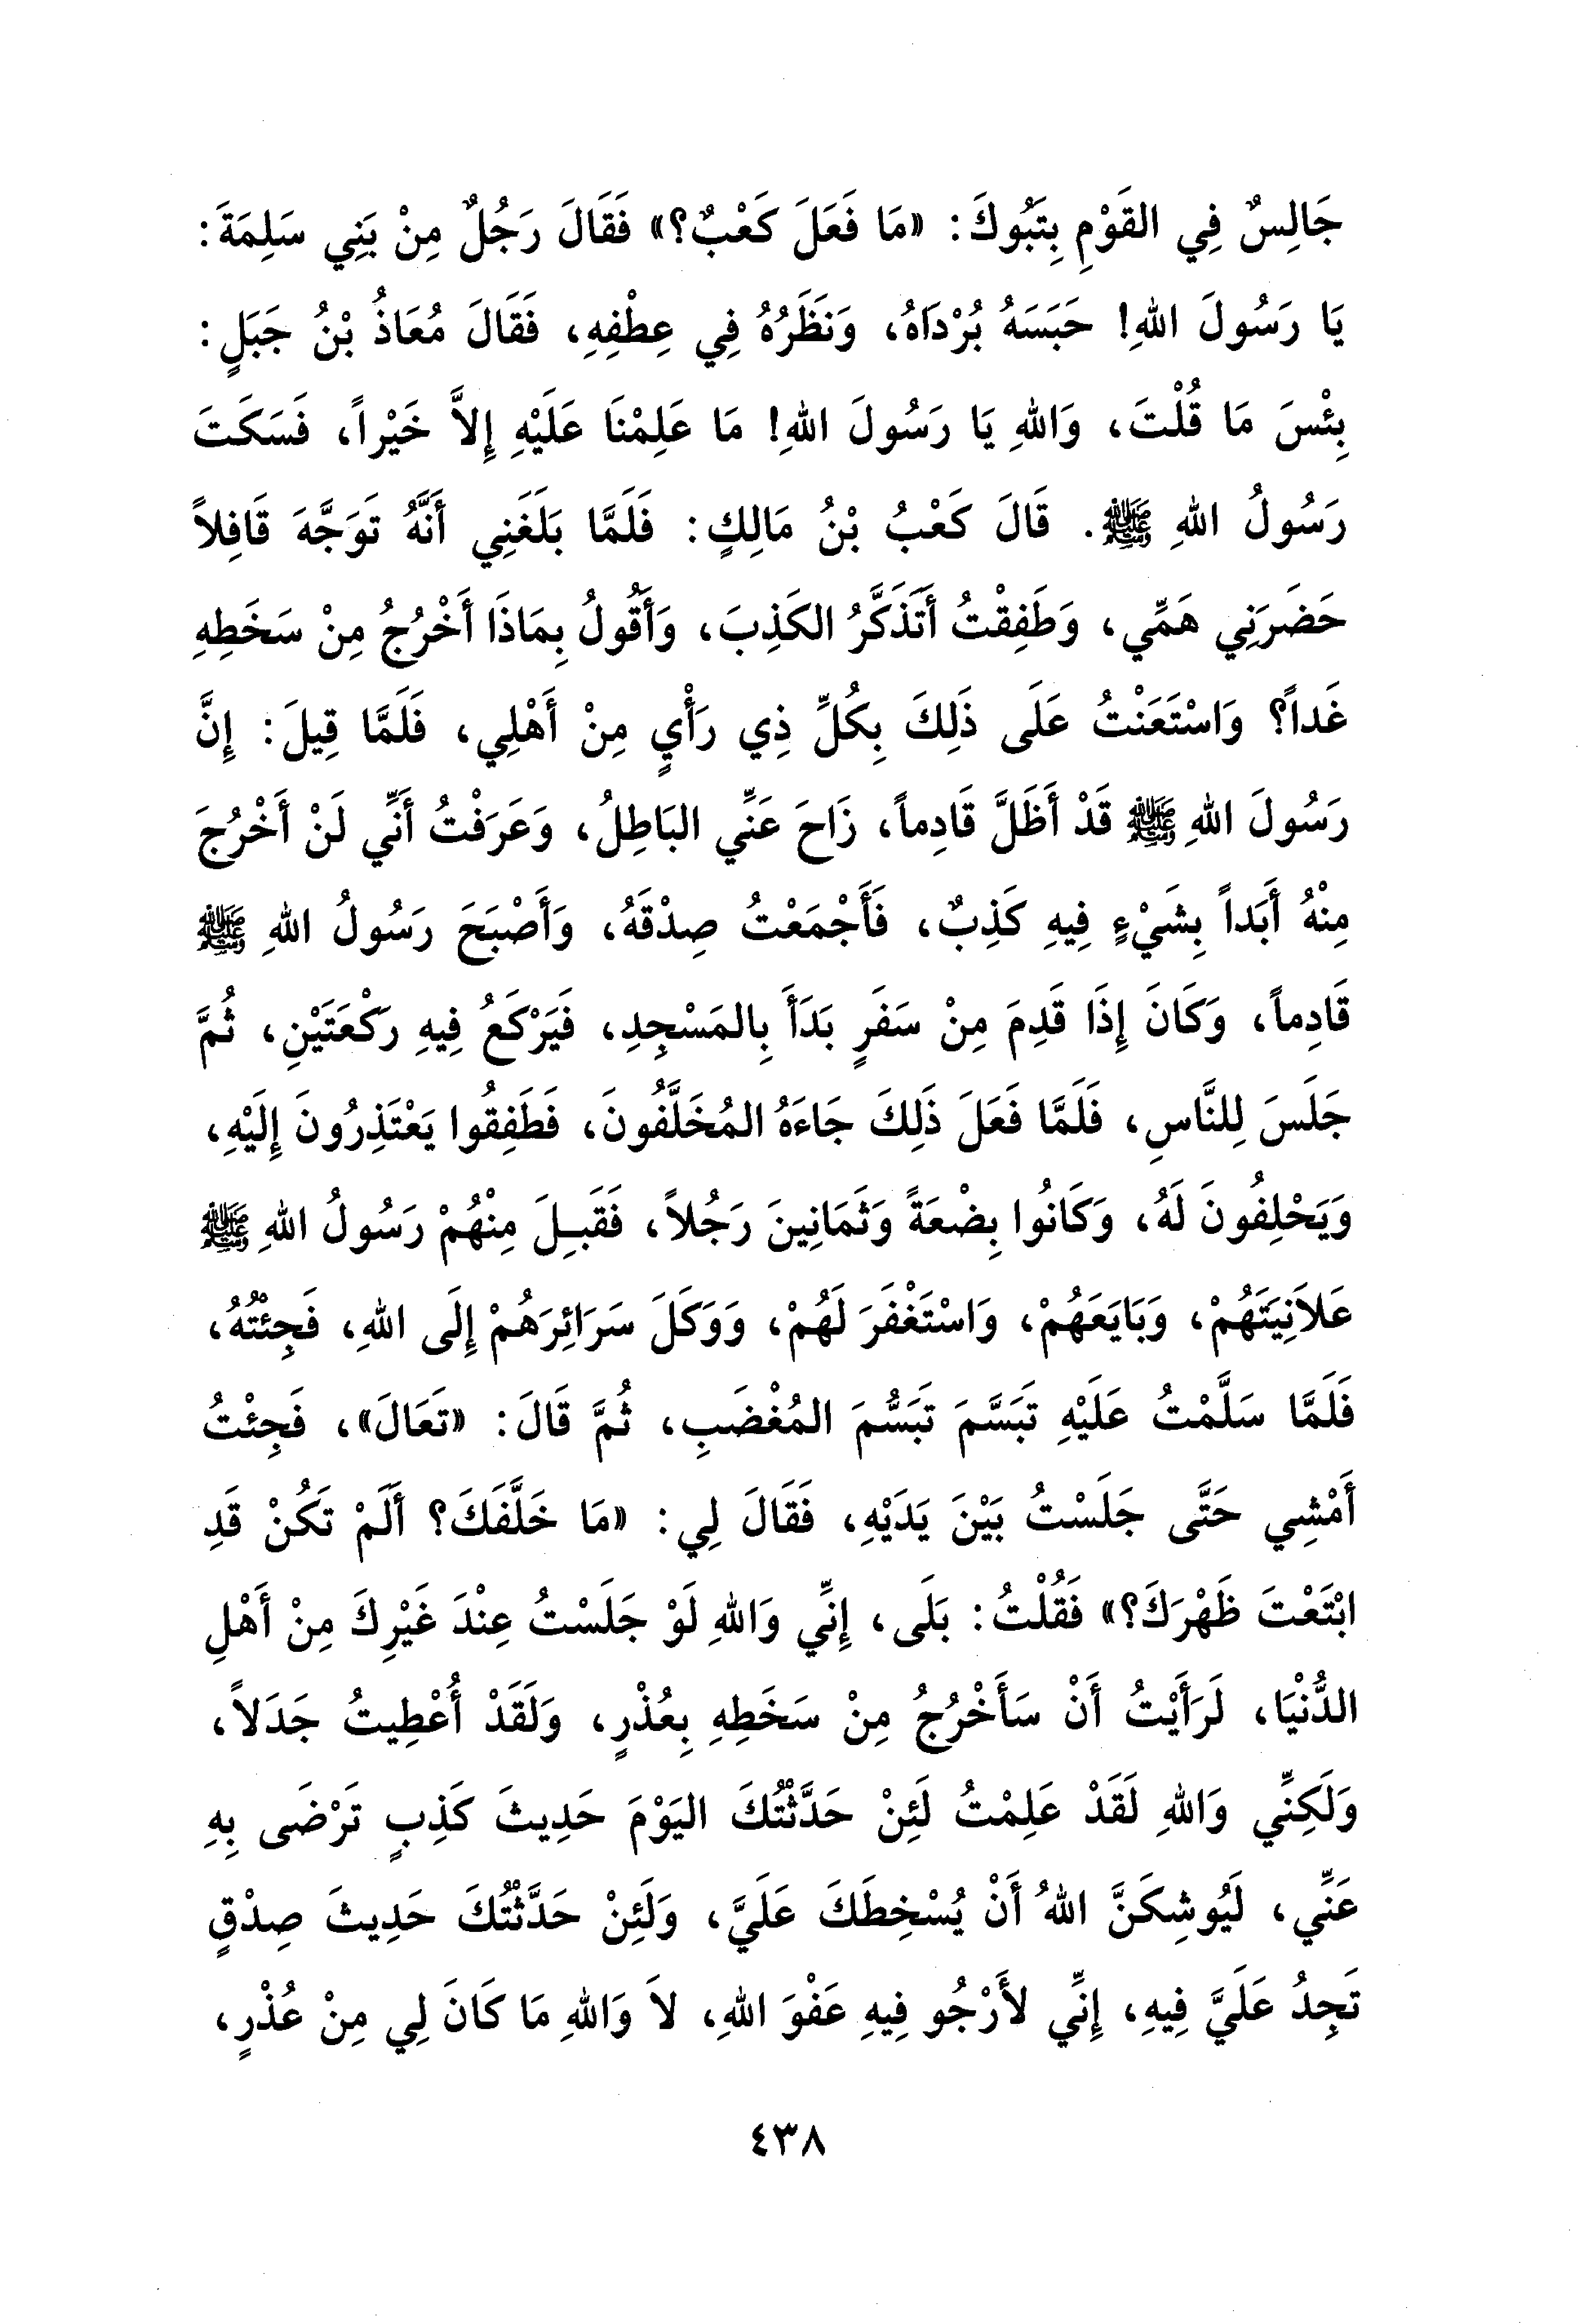 جَالِسٌ فِي القَوْمِ بِتَبُوكَ: «مَا فَعَلَ كَعْبٌ؟» فَقَالَ رَجُلٌ مِنْ بَنِي سَلِمَةَ:
يَا رَسُولَ اللهِ! حَبَسَهُ بُرْدَاهُ، وَنَظَرُهُ فِي عِطْفِهِ، فَقَالَ مُعَاذُ بْنُ جَبَلٍ:
بِئْسَ مَا قُلْتَ، وَاللهِ يَا رَسُولَ اللهِ! مَا عَلِمْنَا عَلَيْهِ إِلاَّ خَيْراً، فَسَكَتَ
رَسُولُ اللهِ ﷺ. قَالَ كَعْبُ بْنُ مَالِكٍ: فَلَمَّا بَلَغَنِي أَنَّهُ تَوَجَّهَ قَافِلاً
حَضَرَنِي هَمِّي، وَطَفِقْتُ أَتَذَكَّرُ الكَذِبَ، وَأَقُولُ بِمَاذَا أَخْرُجُ مِنْ سَخَطِهِ
غَداً؟ وَاسْتَعَنْتُ عَلَى ذَلِكَ بِكُلِّ ذِي رَأْيٍ مِنْ أَهْلِي، فَلَمَّا قِيلَ: إِنَّ
رَسُولَ اللهِ ﷺ قَدْ أَظَلَّ قَادِماً، زَاحَ عَنِّي البَاطِلُ، وَعَرَفْتُ أَنِّي لَنْ أَخْرُجَ
مِنْهُ أَبَداً بِشَيْءٍ فِيهِ كَذِبٌ، فَأَجْمَعْتُ صِدْقَهُ، وَأَصْبَحَ رَسُولُ اللهِ ﷺ
قَادِماً، وَكَانَ إِذَا قَدِمَ مِنْ سَفَرٍ بَدَأَ بِالمَسْجِدِ، فَيَرْكَعُ فِيهِ رَكْعَتَيْنِ، ثُمَّ
جَلَسَ لِلنَّاسِ، فَلَمَّا فَعَلَ ذَلِكَ جَاءَهُ المُخَلَّفُونَ، فَطَفِقُوا يَعْتَذِرُونَ إِلَيْهِ،
وَيَحْلِفُونَ لَهُ، وَكَانُوا بِضْعَةً وَثَمَانِينَ رَجُلاً، فَقَبِلَ مِنْهُمْ رَسُولُ اللهِ ﷺ
عَلاَنِيَتَهُمْ، وَبَايَعَهُمْ، وَاسْتَغْفَرَ لَهُمْ، وَوَكَلَ سَرَائِرَهُمْ إِلَى اللهِ، فَجِئْتُهُ،
فَلَمَّا سَلَّمْتُ عَلَيْهِ تَبَسَّمَ تَبَسُّمَ المُغْضَبِ، ثُمَّ قَالَ: «تَعَالَ»، فَجِئْتُ
أَمْشِي حَتَّى جَلَسْتُ بَيْنَ يَدَيْهِ، فَقَالَ لِي: «مَا خَلَّفَكَ؟ أَلَمْ تَكُنْ قَدِ
ابْتَعْتَ ظَهْرَكَ؟» فَقُلْتُ: بَلَى، إِنِّي وَاللهِ لَوْ جَلَسْتُ عِنْدَ غَيْرِكَ مِنْ أَهْلِ
الدُّنْيَا، لَرَأَيْتُ أَنْ سَأَخْرُجُ مِنْ سَخَطِهِ بِعُذْرٍ، وَلَقَدْ أُعْطِيتُ جَدَلاً،
وَلَكِنِّي وَاللهِ لَقَدْ عَلِمْتُ لَئِنْ حَدَّثْتُكَ اليَوْمَ حَدِيثَ كَذِبٍ تَرْضَى بِهِ
عَنِّي، لَيُوشِكَنَّ اللهُ أَنْ يُسْخِطَكَ عَلَيَّ، وَلَئِنْ حَدَّثْتُكَ حَدِيثَ صِدْقٍ
تَجِدُ عَلَيَّ فِيهِ، إِنِّي لأَرْجُو فِيهِ عَفْوَ اللهِ، لاَ وَاللهِ مَا كَانَ لِي مِنْ عُذْرٍ،
٤٣٨